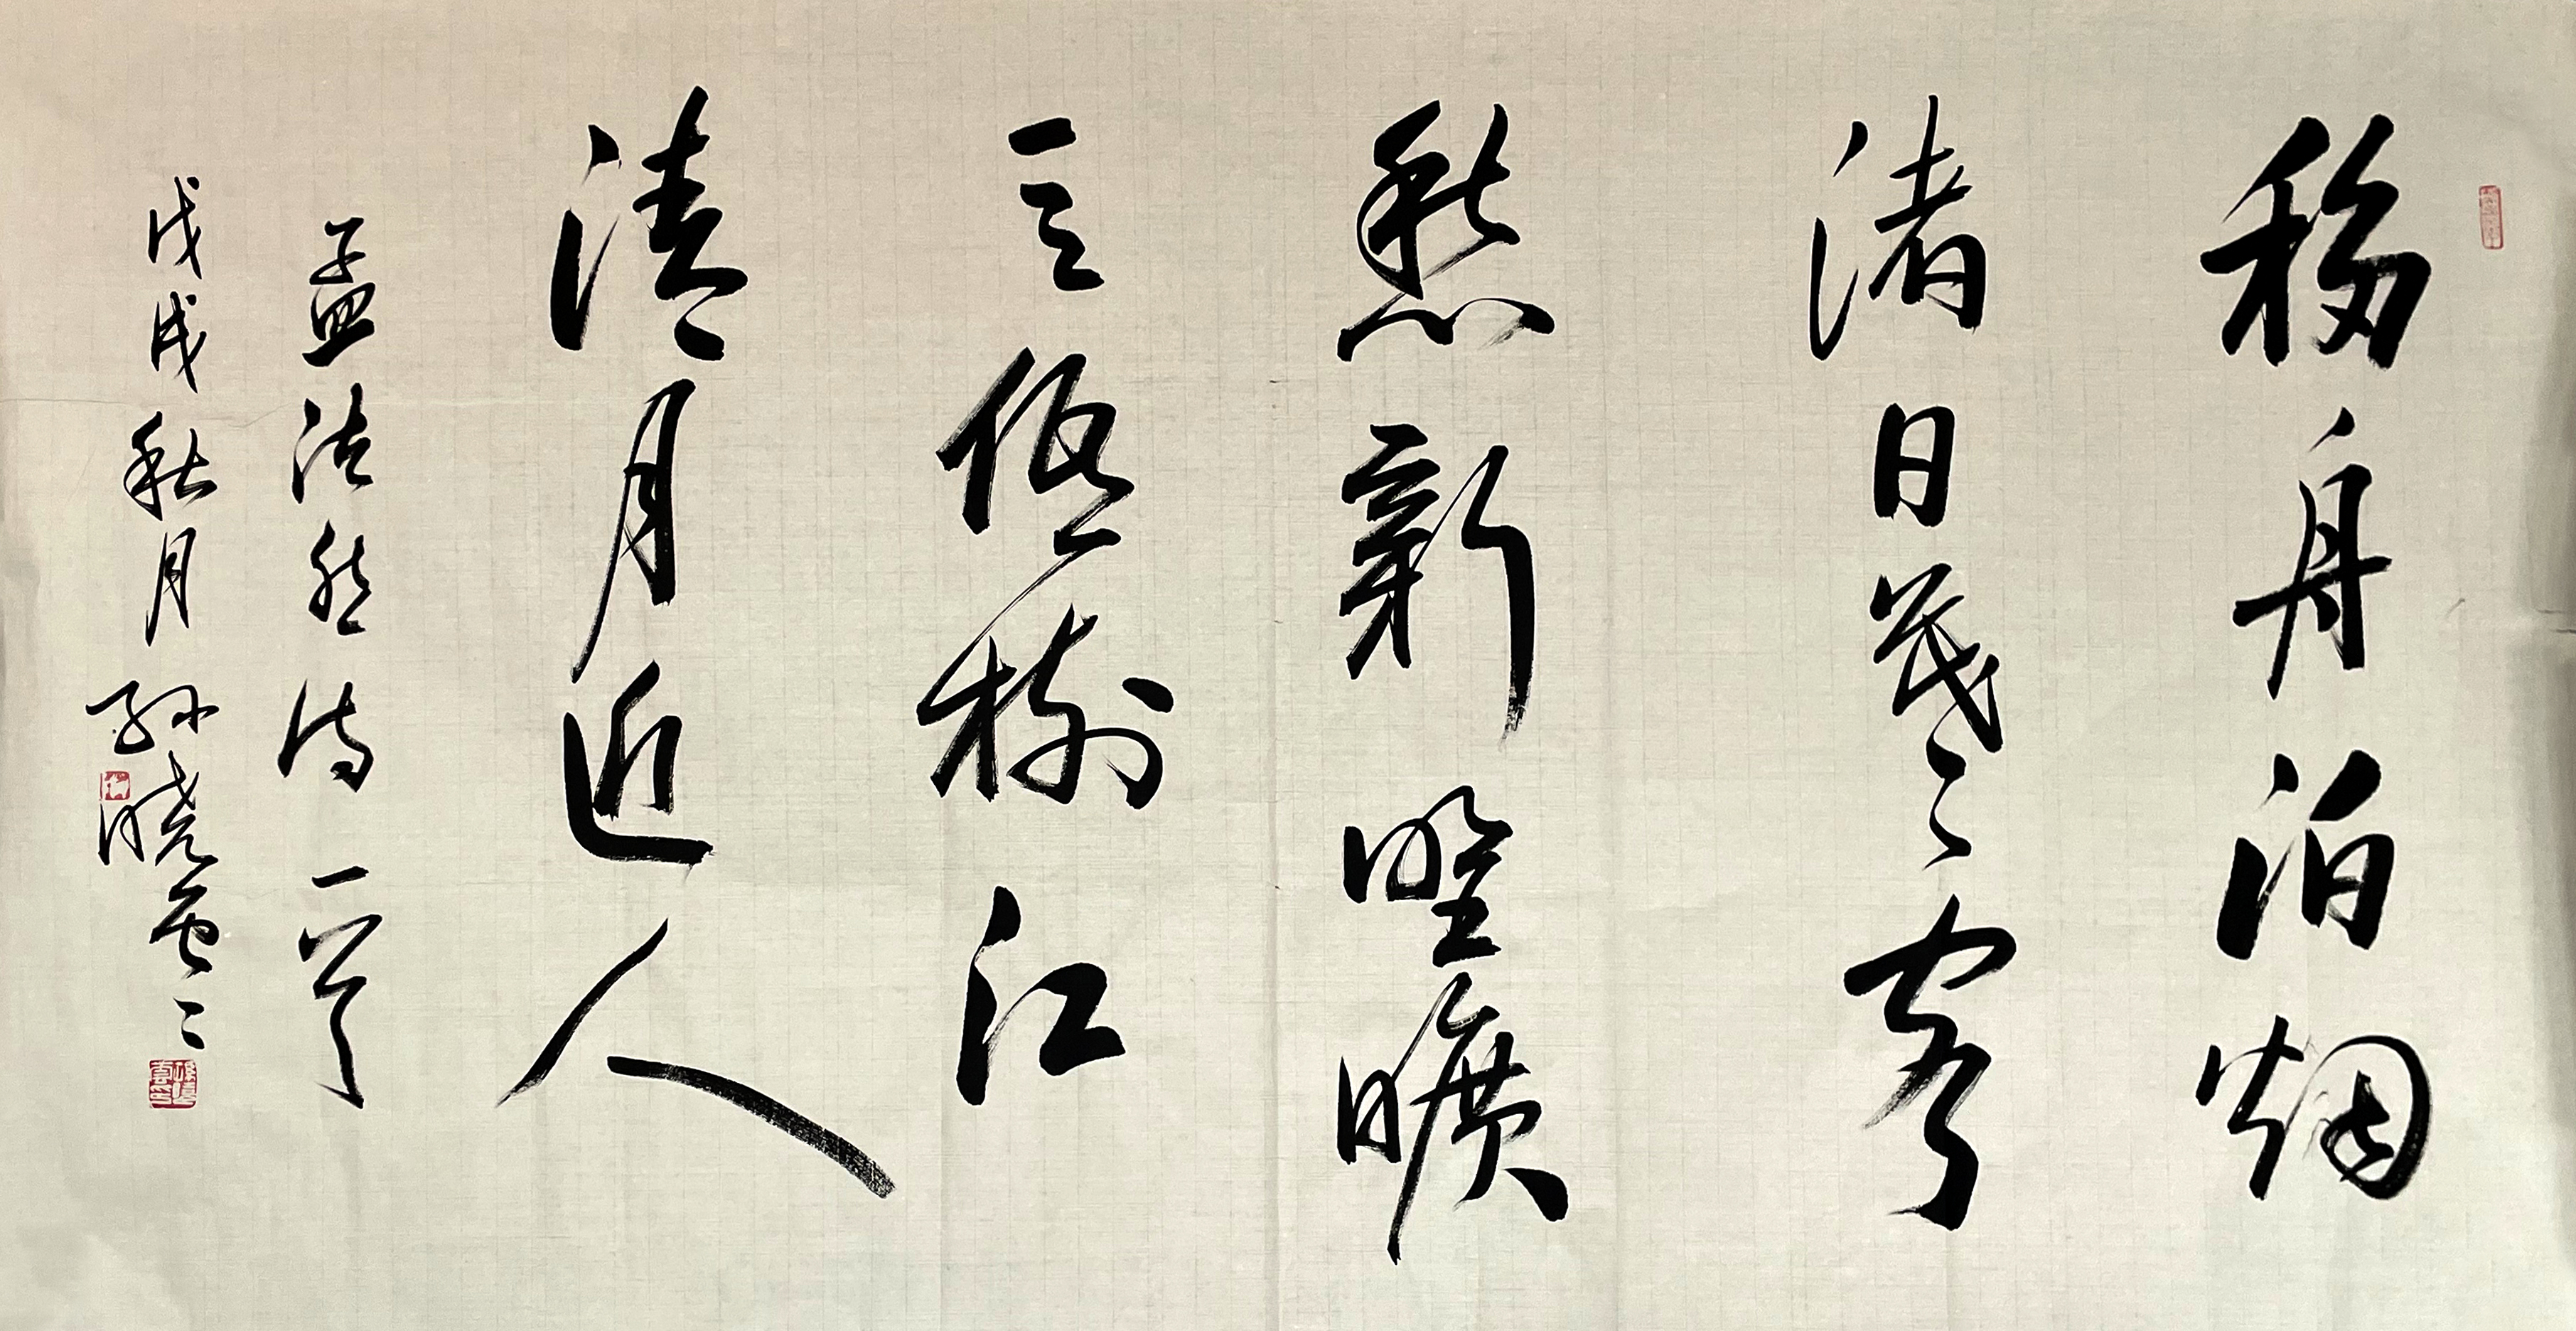 移舟泊烟
渚日暮客
愁新野曠
天低樹江
清月近人
孟浩然詩一首
戊戌秋月孫曉雲